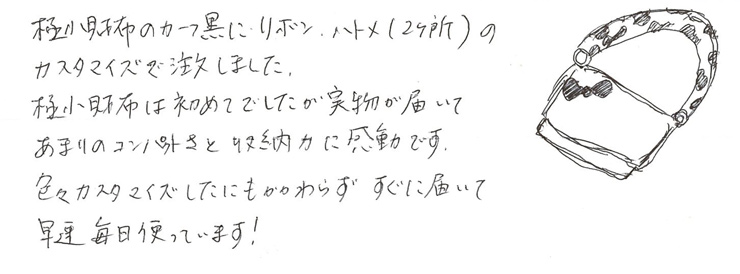 極小財布のカーフ黒に、リボン、ハトメ(2ヶ所)の
カスタマイズで注文しました。
極小財布は初めてでしたが実物が届いて
あまりのコンパクトさと収納力に感動です。
色々カスタマイズしたにもかかわらず すぐに届いて
早速 毎日使っています!